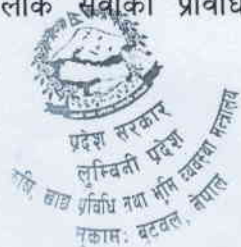 लोक सेवाको प्रावधि
प्रदेश सरकार
लुम्बिनी प्रदेश
कृषि, खाद्य प्रविधि तथा भूमि व्यवस्था मन्त्रालय
मुकाम: बुटवल, नेपाल